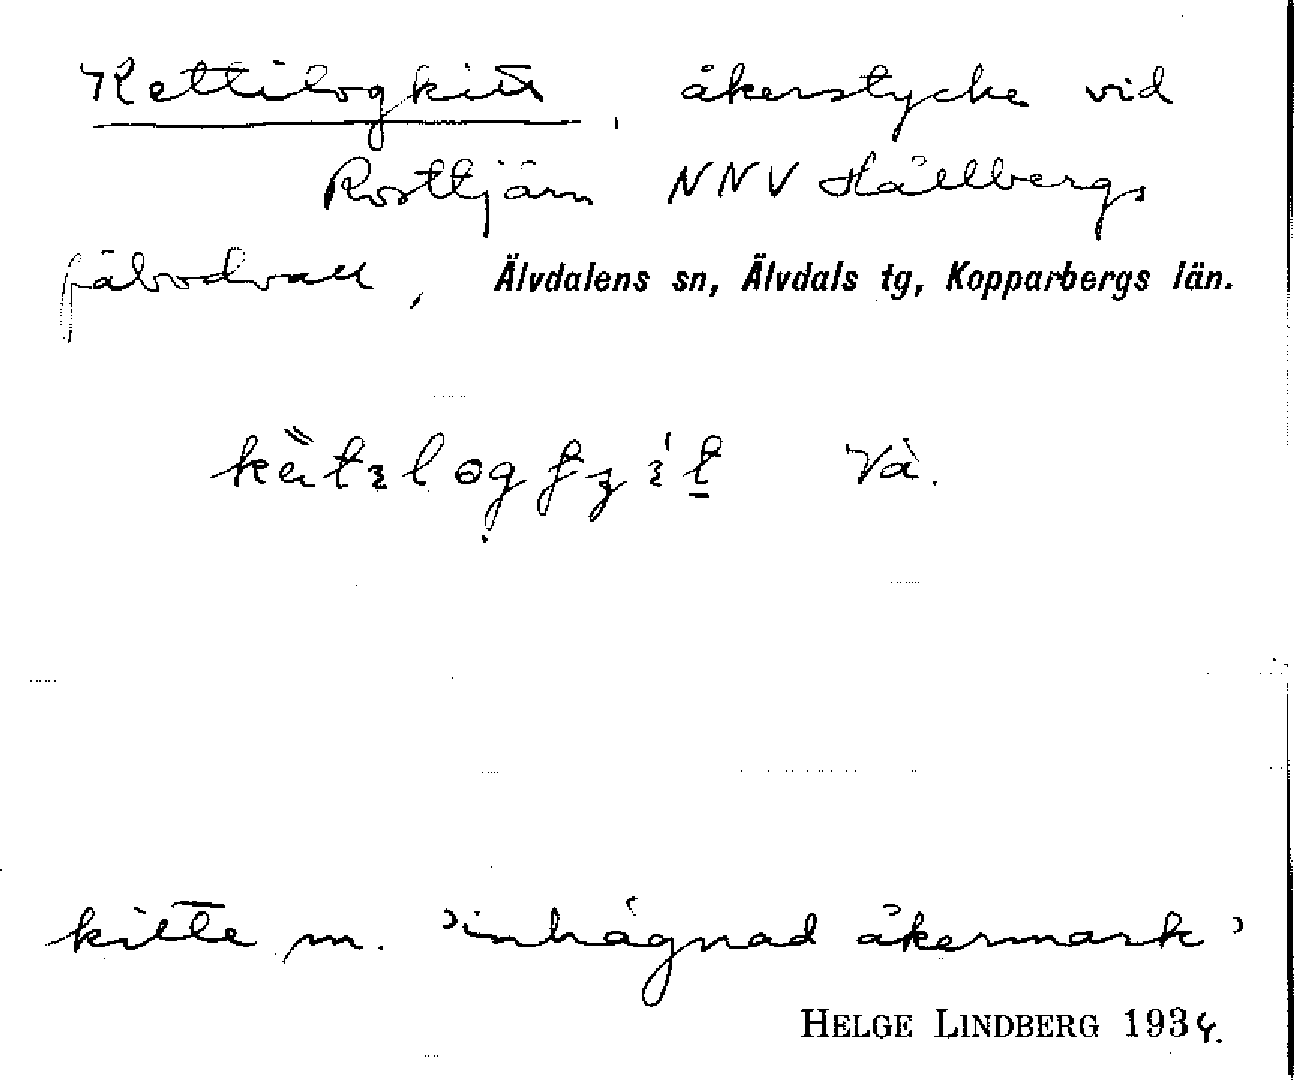 Kettilogkitt, åkerstycke vid
Rosttjärn NNV Hållbergs
fäbodvall, Älvdalens sn, Älvdals tg, Kopparbergs län.
Va.
kitte m. 'inhägnad åkermark'
HELGE LINDBERG 1934.